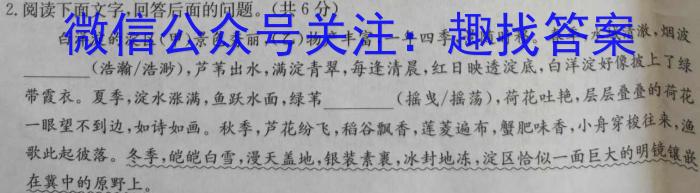 2.阅读下面文字,回答后面的问题。(共6分)
微信公众号关注：趣找答案
(浩瀚/浩渺),芦苇出水,满淀青翠,每逢清晨,红日映透淀底,白洋淀好像披上了绿
带霞衣。夏季,淀水涨满,鱼跃水面,绿苇________(摇曳/摇荡),荷花吐艳,层层叠叠的荷花
一眼望不到边,如诗如画。秋季,芦花纷飞,稻谷飘香,莲菱遍布,蟹肥味香,小舟穿梭往来,渔
歌此起彼落。冬季,皑皑白雪,漫天盖地,银装素裹,冰封地冻,淀区恰似一面巨大的明镜镶嵌
在冀中的原野上。